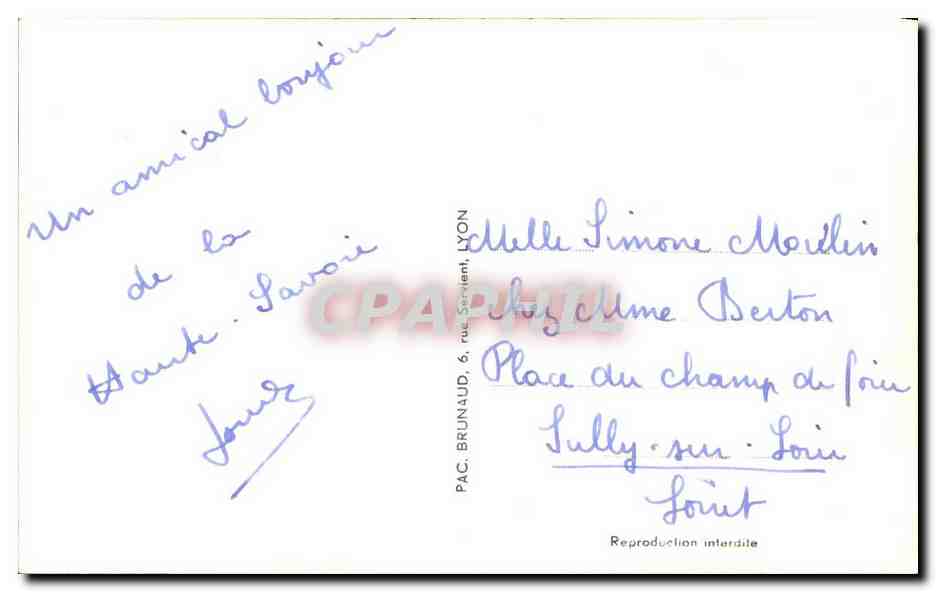 Un amical bonjour
de la
Haute-Savoie
PAC. BRUNAUD, 6, rue Servient, LYON
CPAPHIL
Melle Simone
chez Mme Berton
Place du champ de foire
Sully-sur-Loire
Loiret
Reproduction interdite